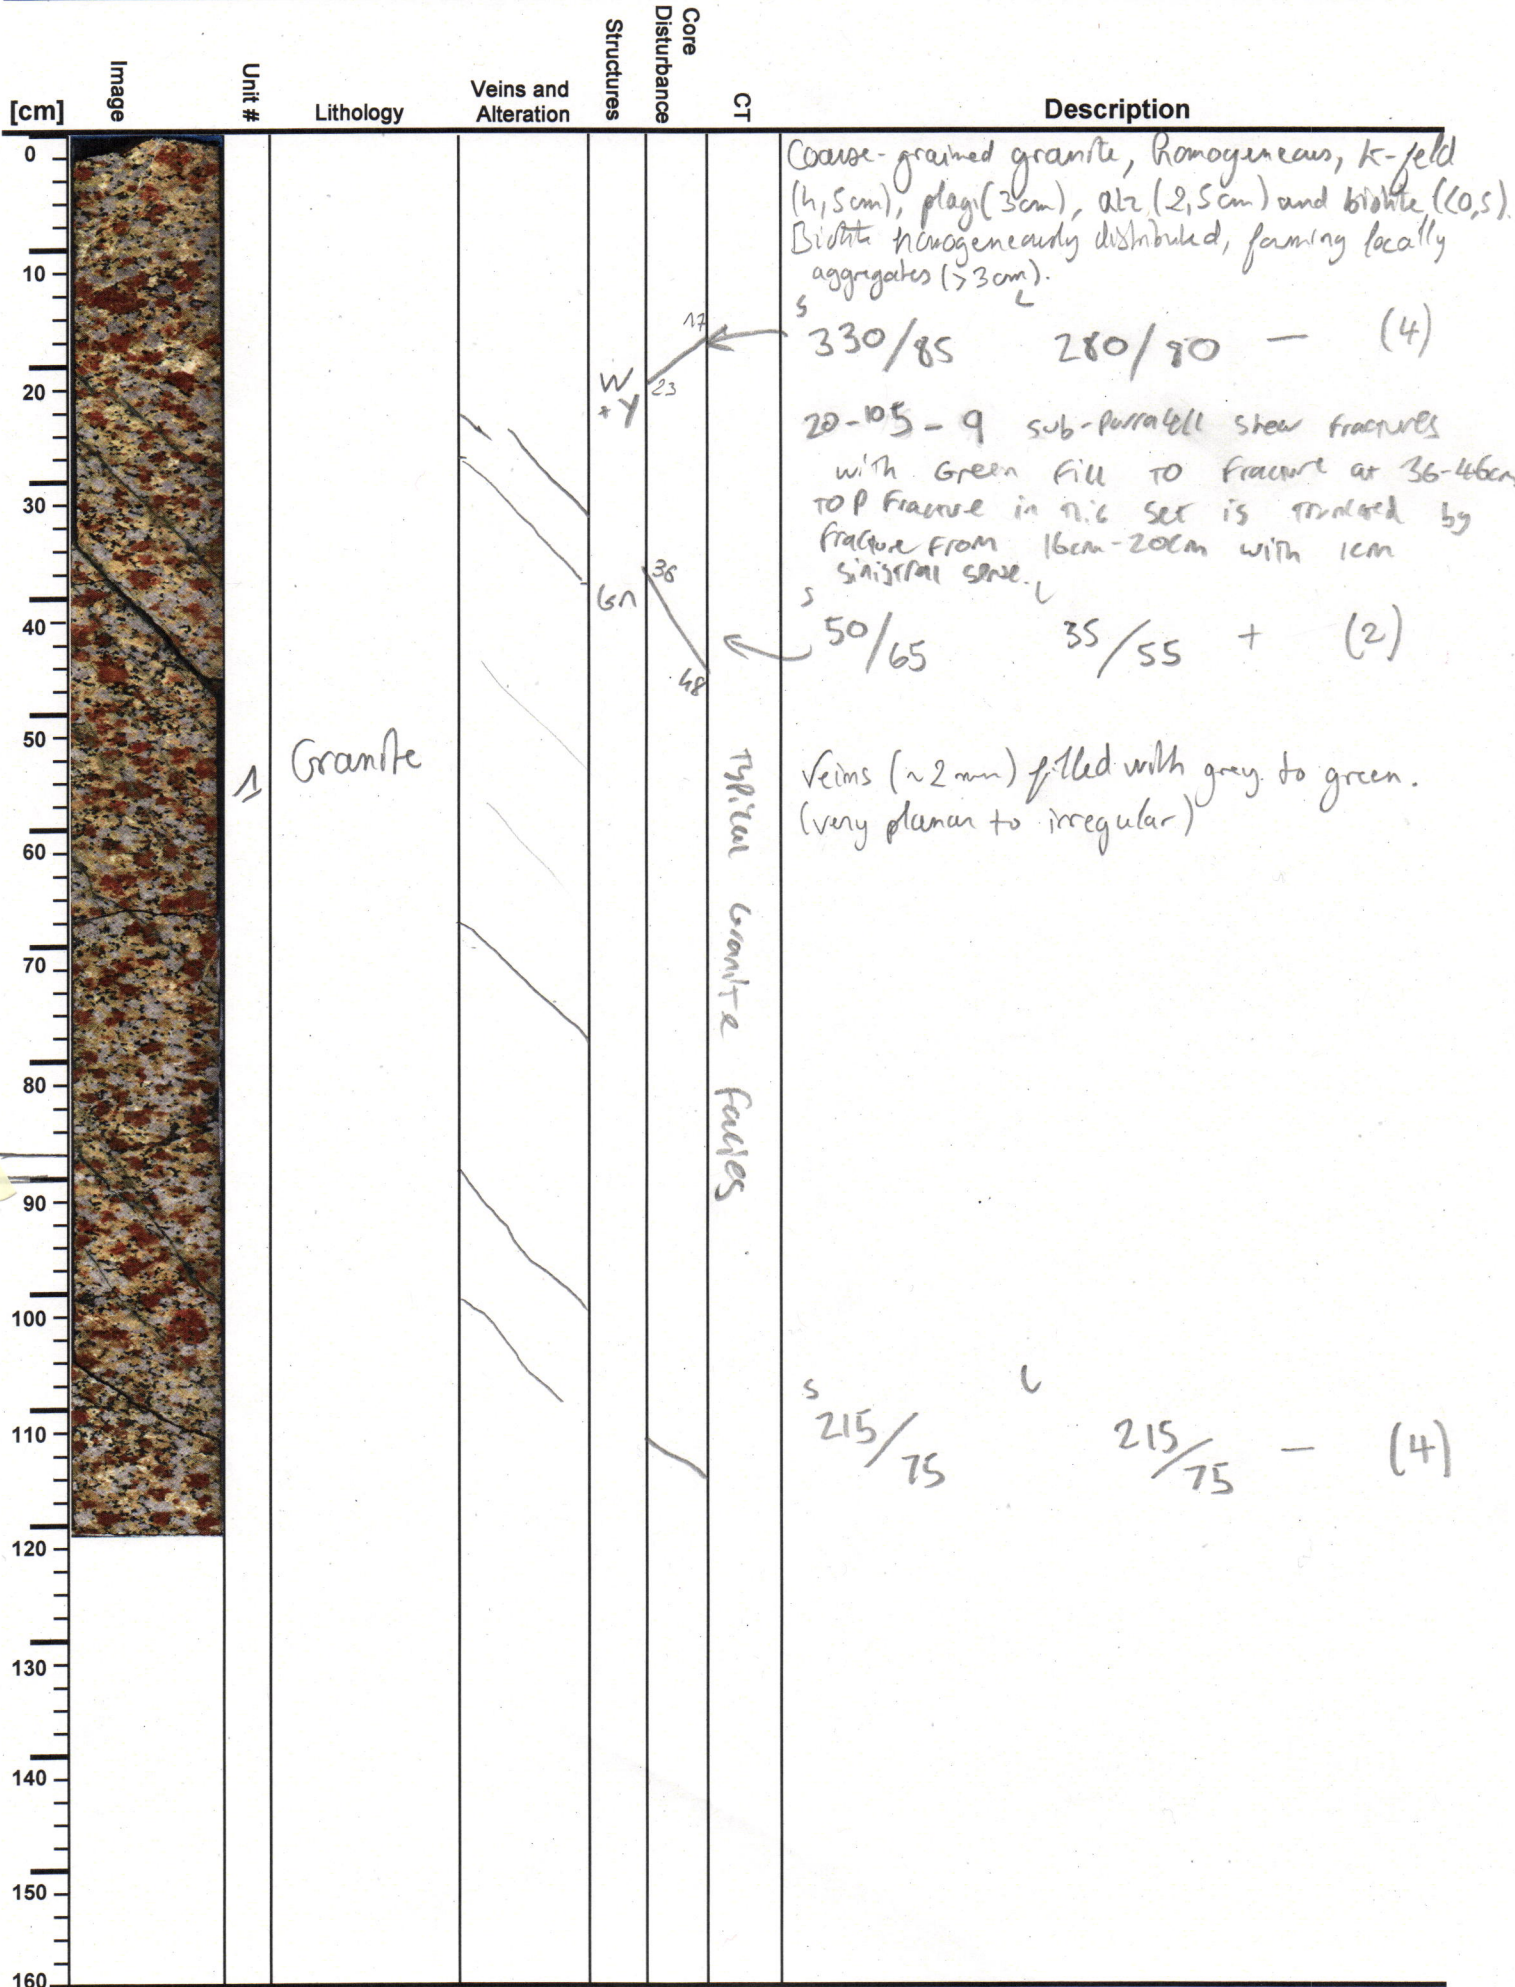 [cm]
Image
Unit #
Lithology
Veins and
Alteration
Structures
Core
Disturbance
CT
Description
0
10
20
30
40
50
60
70
80
90
100
110
120
130
140
150
160
1
Granite
W
+ Y
Gn
17
23
36
48
Typical Granite Facies
Coarse-grained granite, homogeneous, K-feld
(4,5cm), plagi(3cm), qtz (2,5cm) and biotite (<0,5).
Biotite homogeneously distributed, forming locally
aggregates (>3cm).
S L
330/85 280/80 — (4)
20-105 - 9 sub-parralell shear fractures
with Green Fill TO Fracture at 36-46cm
TOP Fracture in this set is truncated by
fracture from 16cm-20cm with 1cm
sinistral sense.
S L
50/65 35/55 + (2)
Veins (~2 mm) filled with grey to green.
(very planar to irregular)
S L
215/75 215/75 — (4)